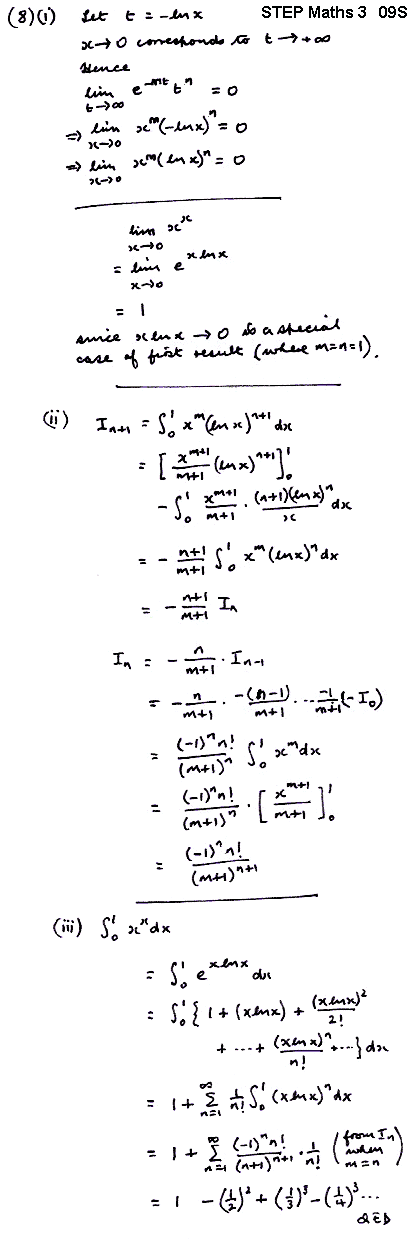 (8)(i) Let t = -ln x STEP Maths 3 09S
x → 0 corresponds to t → +∞
Hence
lim_{t→∞} e^{-mt} t^n = 0
⇒ lim_{x→0} x^m (-ln x)^n = 0
⇒ lim_{x→0} x^m (ln x)^n = 0
lim_{x→0} x^x
= lim_{x→0} e^{x ln x}
= 1
since x ln x → 0 is a special
case of first result (where m=n=1).
(ii) I_{n+1} = ∫_0^1 x^m (ln x)^{n+1} dx
= [ x^{m+1}/(m+1) (ln x)^{n+1} ]_0^1
- ∫_0^1 x^{m+1}/(m+1) · (n+1)(ln x)^n/x dx
= - (n+1)/(m+1) ∫_0^1 x^m (ln x)^n dx
= - (n+1)/(m+1) I_n
I_n = - n/(m+1) · I_{n-1}
= - n/(m+1) · -(n-1)/(m+1) · ... -1/(m+1) (- I_0)
= (-1)^n n!/(m+1)^n ∫_0^1 x^m dx
= (-1)^n n!/(m+1)^n · [ x^{m+1}/(m+1) ]_0^1
= (-1)^n n!/(m+1)^{n+1}
(iii) ∫_0^1 x^x dx
= ∫_0^1 e^{x ln x} dx
= ∫_0^1 { 1 + (x ln x) + (x ln x)^2/2!
+ ... + (x ln x)^n/n! + ... } dx
= 1 + Σ_{n=1}^∞ 1/n! ∫_0^1 (x ln x)^n dx
= 1 + Σ_{n=1}^∞ (-1)^n n!/(n+1)^{n+1} · 1/n! (from I_n when m=n)
= 1 - (1/2)^2 + (1/3)^3 - (1/4)^3 ...
QED